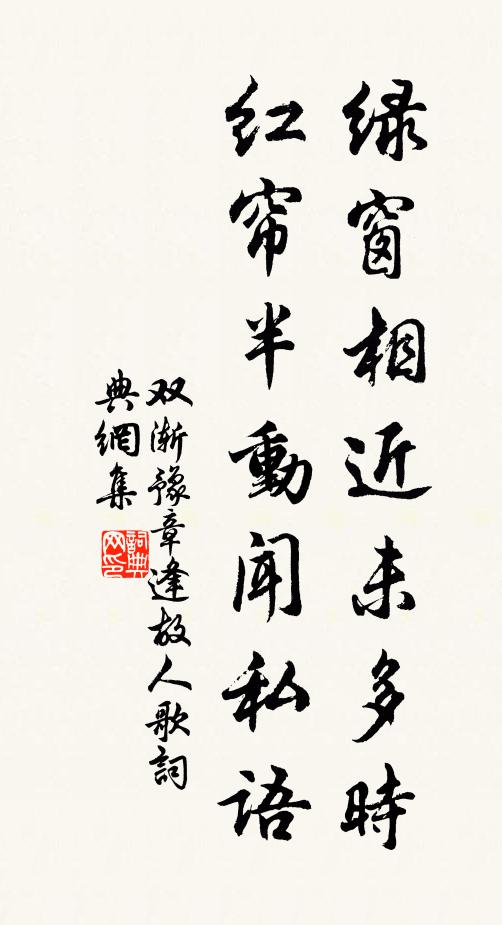 绿窗相近未多時
红帘半動闻私語
双渐豫章逢故人歌詞
典網集
詞典网印